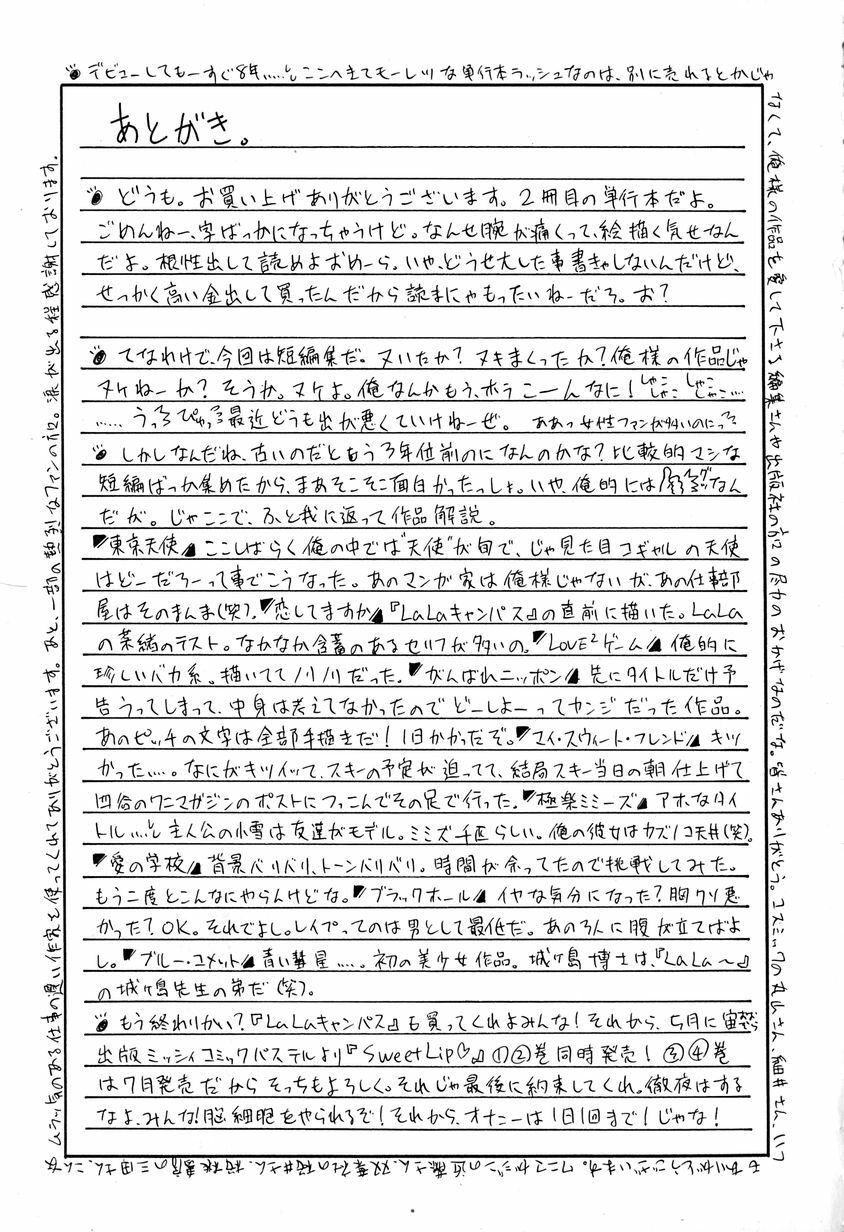 デビューしてもーすぐ8年……。ここへきてモーレツな単行本ラッシュなのは、別に売れるとかじゃ
なくて、俺様の作品を愛して下さる編集さんや出版社の方の尽力のおかげなのだな。皆さんありがとう。コスミックの丸山さん、細井さん、いつ
もありがとうございます。ワニマガジンの近藤さん、双葉社の桜井さん、桜桃書房の三田さん、こんな
ムラッ気のある仕事の遅い作家を使ってくれてありがとうございます。あと、一部の熱烈なファンの方。涙が出る程感謝しております。
あとがき。
どうも。お買い上げありがとうございます。2冊目の単行本だよ。
ごめんねー、字ばっかになっちゃうけど。なんせ腕が痛くって、絵描く気せなん
だよ。根性出して読めよおめーら。いや、どうせ大した事書きゃしないんだけど、
せっかく高い金出して買ったんだから読まにゃもったいねーだろ。お?
てなわけで、今回は短編集だ。ヌいたか?ヌキまくったか?俺様の作品じゃ
ヌケねーか?そうか。ヌケよ。俺なんかもう、ホラこーんなに!しゃこしゃこしゃこしゃこ…
……うっ、ぴゅっ 最近どうも出が悪くていけねーぜ。ああっ女性ファンが多いのにっ
しかしなんだね、古いのだともう3年位前のになんのかな?比較的マシな
短編ばっか集めたから、まあそこそこ面白かったっしょ。いや、俺的には なん
だが。じゃここで、ふと我に返って作品解説。
東京天使 ここしばらく俺の中では“天使”が旬で、じゃ見た目コギャルの天使
はどーだろーって事でこうなった。あのマンガ家は俺様じゃないが、あの仕事部
屋はそのまんま(笑)。恋してますか『LaLaキャンパス』の直前に描いた。LaLa
の菜緒のテスト。なかなか含蓄のあるセリフが多いの。LOVE²ゲーム 俺的に
珍しいバカ系。描いててノリノリだった。がんばれニッポン 先にタイトルだけ予
告うってしまって、中身は考えてなかったのでどーしよーってカンジだった作品。
あのピッチの文字は全部手描きだ!1日かかったぞ。マイ・スウィート・フレンド キツ
かった…。なにがキツイって、スキーの予定が迫ってて、結局スキー当日の朝仕上げて
四谷のワニマガジンのポストにつっこんでその足で行った。極楽ミミーズ アホなタイ
トル…。主人公の小雪は友達がモデル。ミミズ千匹らしい。俺の彼女はカズノコ天井(笑)。
愛の学校 背景バリバリ、トーンバリバリ。時間が余ってたので挑戦してみた。
もう二度とこんなにやらんけどな。ブラックホール イヤな気分になった?胸クソ悪
かった?OK。それでよし。レイプってのは男として最低だ。あの3人に腹が立てばよ
し。ブルー・コメット 青い彗星…。初の美少女作品。城ヶ島博士は、『LaLa〜』
の城ヶ島先生の弟だ(笑)。
もう終わりかい?『LaLaキャンパス』も買ってくれよみんな!それから、5月に宙
出版ミッシィコミックパステルより『Sweet Lip♡』①②巻同時発売!③④巻
は7月発売だからそっちもよろしく。それじゃ最後に約束してくれ。徹夜はする
なよ、みんな!脳細胞をやられるぞ!それから、オナニーは1日1回まで!じゃな!